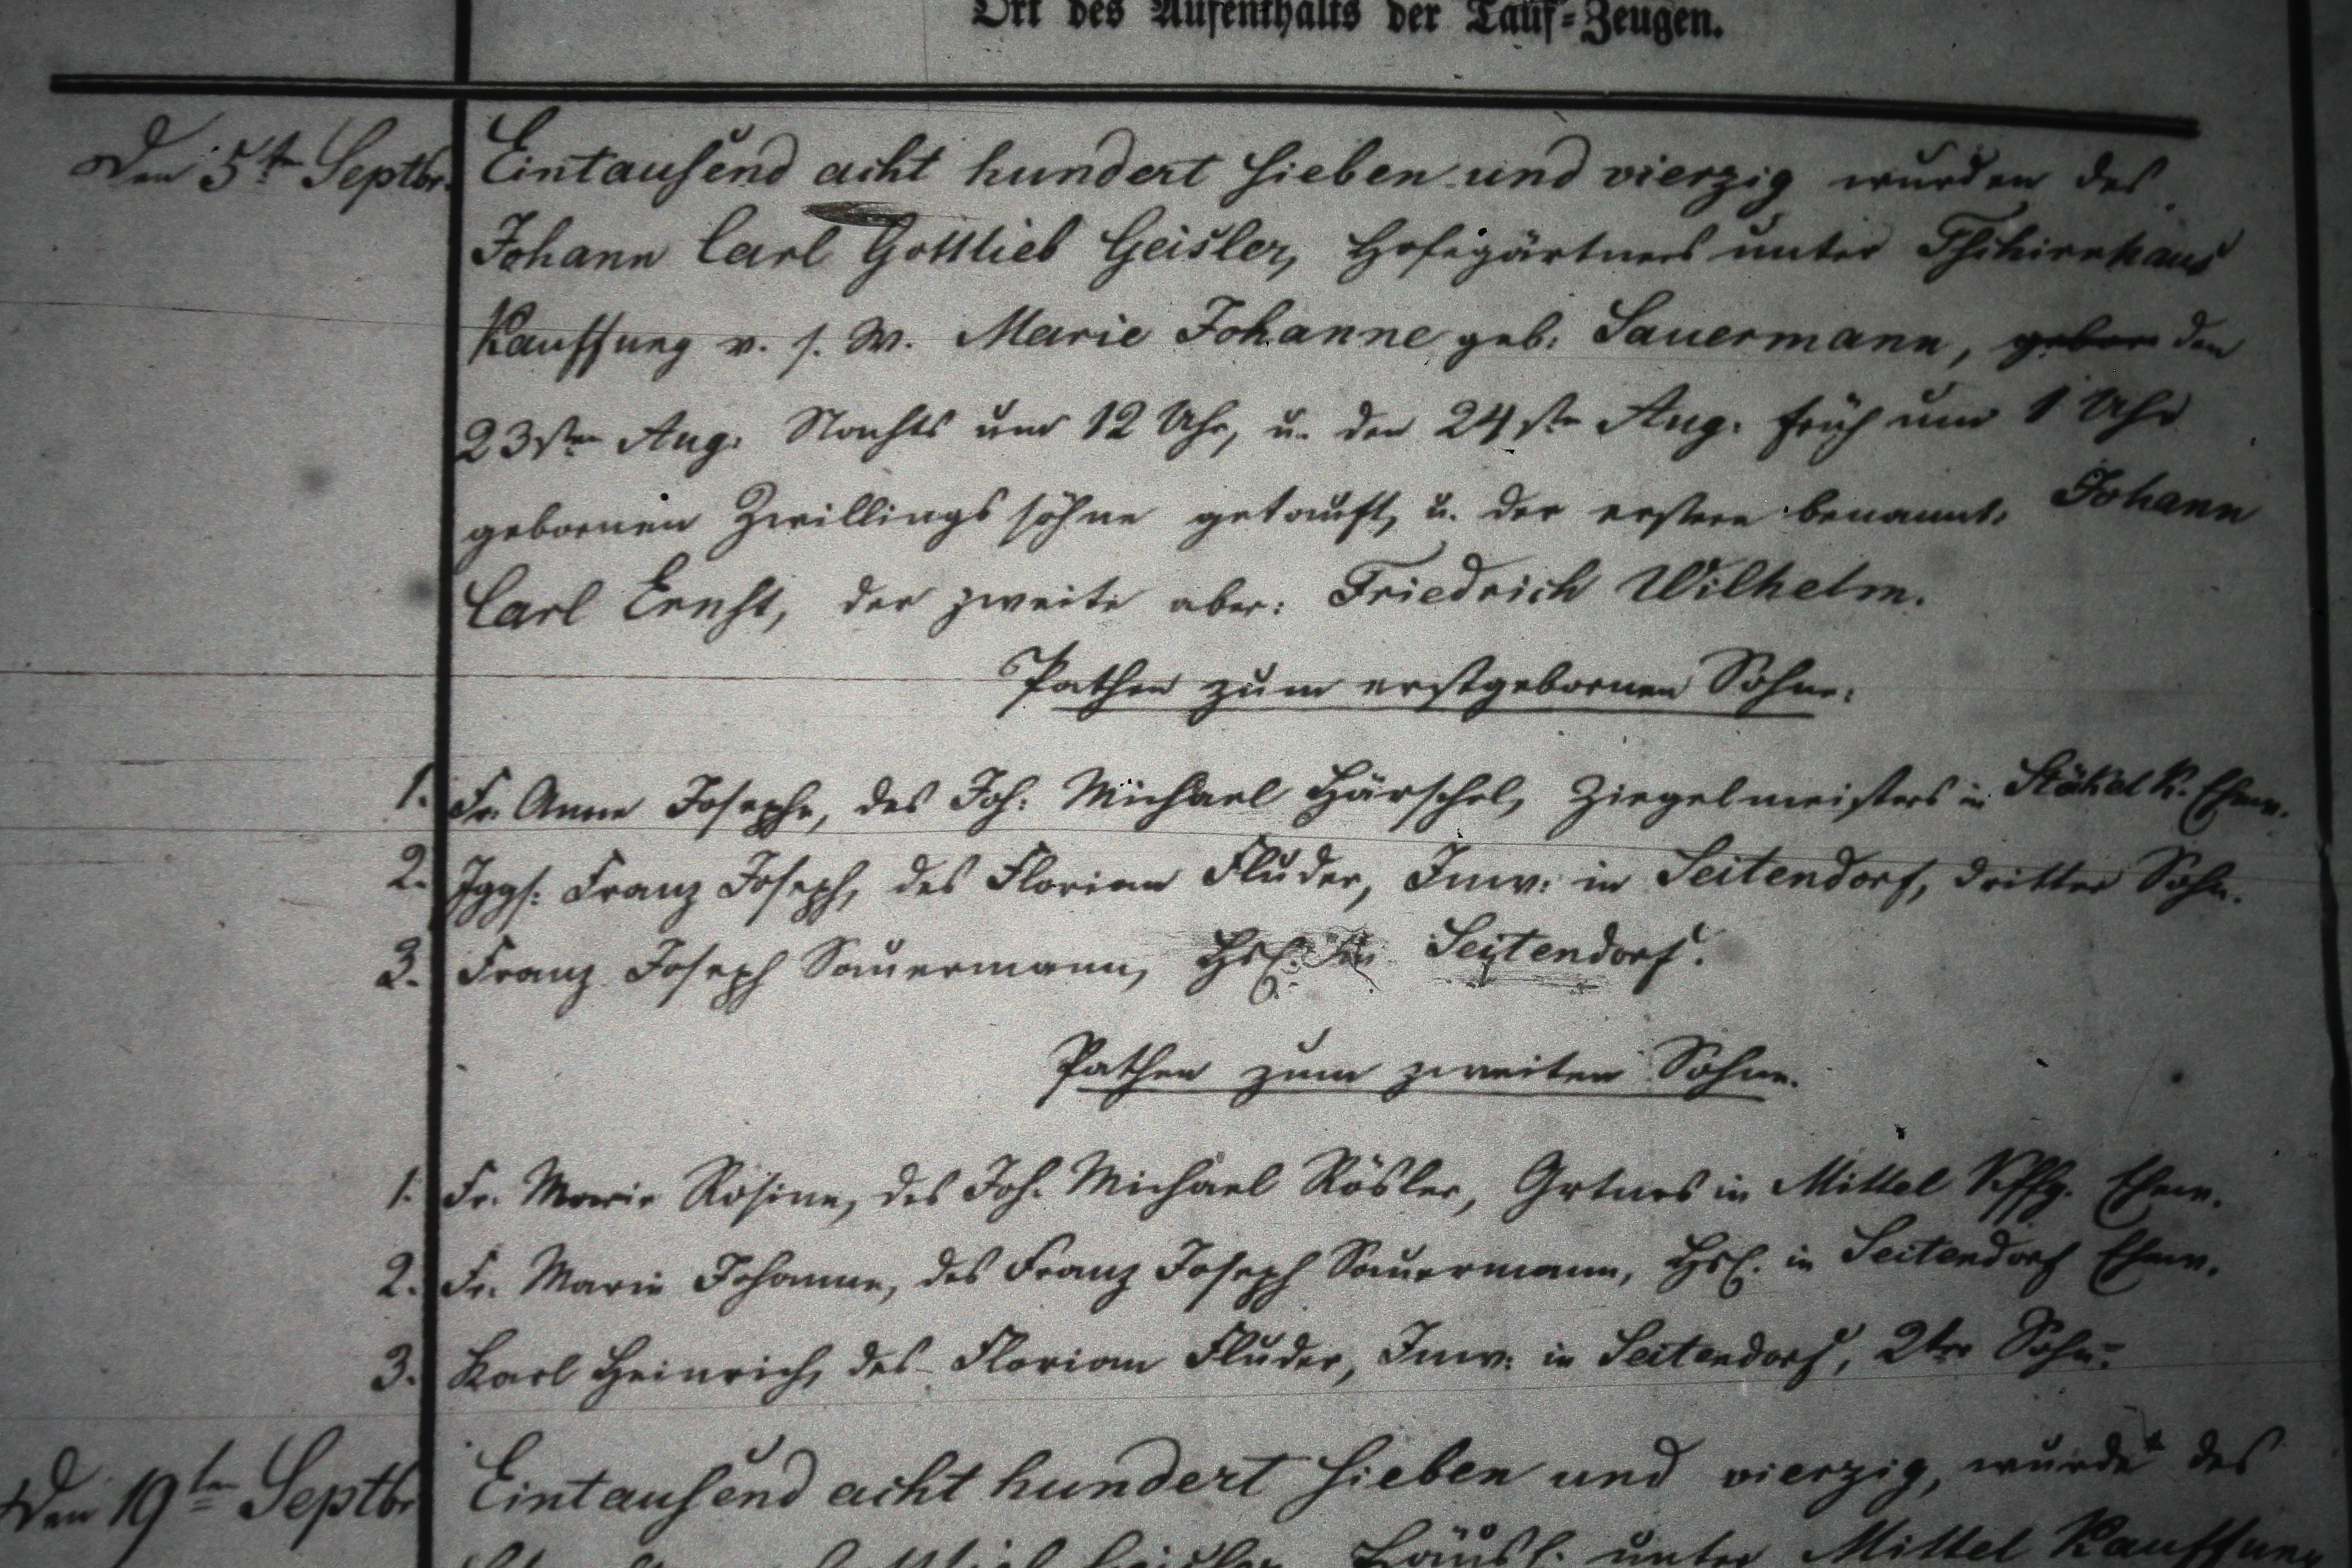 Ort des Aufenthalts der Tauf-Zeugen.
Den 5ten Septbr. Eintausend acht hundert sieben und vierzig wurden des
Johann Carl Gottlieb Geisler, Hofegärtners unter Tschirnhaus
Kauffung v. s. W. Marie Johanne geb. Sauermann, geboren den
23sten Aug. Nachts um 12 Uhr, u. den 24sten Aug. früh um 1 Uhr
gebornen Zwillingssöhne getauft, u. der erstere benannt: Johann
Carl Ernst, der zweite aber: Friedrich Wilhelm.
Pathen zum erstgebornen Sohne:
1. Fr. Anne Josephe, des Joh. Michael Härschel, Ziegelmeisters in Stökel K. Ehew.
2. Jggs: Franz Joseph, des Florian Fluder, Inw: in Seitendorf, dritter Sohn.
3. Franz Joseph Sauermann, Hsl. in Seitendorf.
Pathen zum zweiten Sohne.
1. Fr. Marie Rosine, des Joh. Michael Rösler, Grtners in Mittel Kffg. Ehew.
2. Fr. Marie Johanne, des Franz Joseph Sauermann, Hsl. in Seitendorf Ehew.
3. Karl Heinrich, des Florian Fluder, Inw: in Seitendorf, 2ter Sohn.
Den 19ten Septbr Eintausend acht hundert sieben und vierzig, wurde des
Häusl. unter Mittel Kauffung